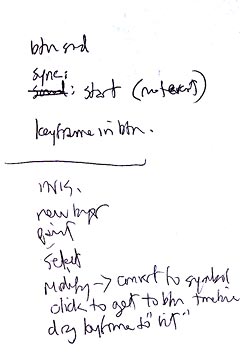 btn snd
sync:
sound: start (not event)
keyframe in btn.
invis.
new layer
paint
select
modify -> convert to symbol
click to get to btn timeline
drag keyframe to "hit"